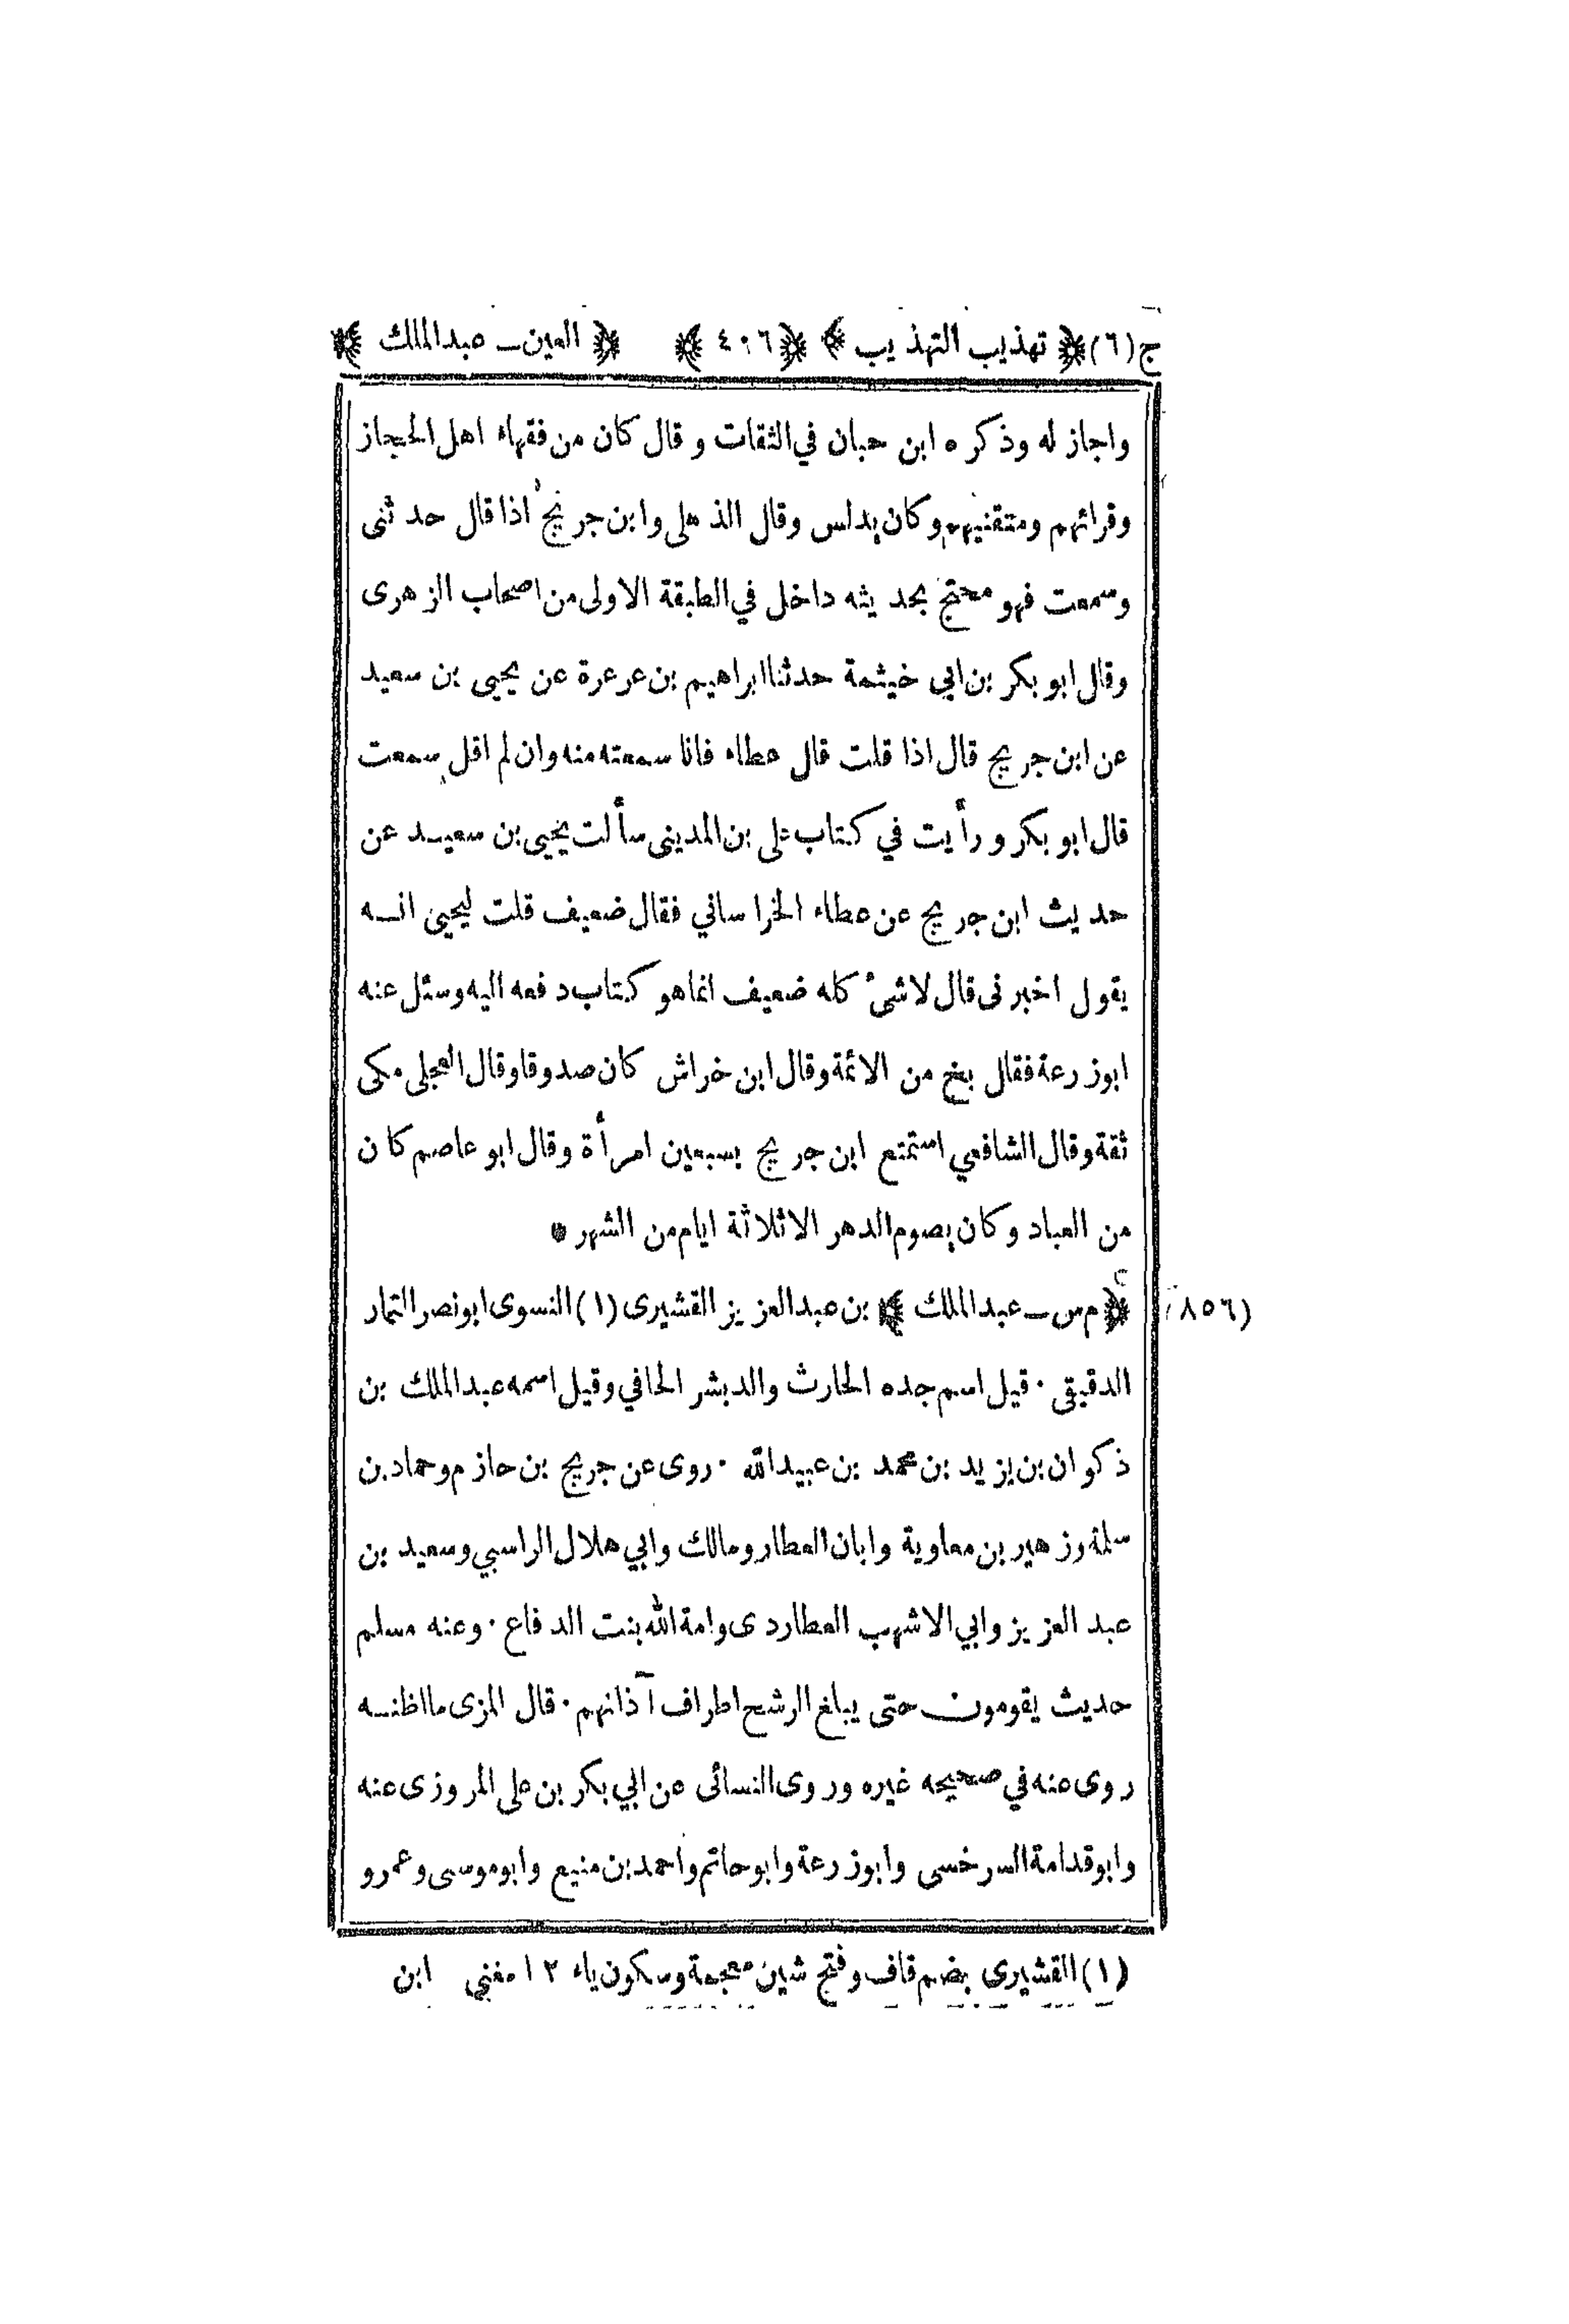 ج(٦) ﴿ تهذيب التهذيب ﴾ ﴿ ٤٠٦ ﴾ ﴿ العين ـ عبدالملك ﴾
واجاز له وذكره ابن حبان في الثقات وقال كان من فقهاء اهل الحجاز
وقرائهم ومتقنيهم وكان يدلس وقال الذهلى وابن جريج اذا قال حدثنى
وسمعت فهو محتج بحديثه داخل في الطبقة الاولى من اصحاب الزهرى
وقال ابو بكر بن ابي خيثمة حدثنا ابراهيم بن عرعرة عن يحيى بن سعيد
عن ابن جريج قال اذا قلت قال عطاء فانا سمعته منه وان لم اقل سمعت
قال ابو بكر ورأيت في كتاب على بن المدينى سألت يحيى بن سعيد عن
حديث ابن جريج عن عطاء الخراساني فقال ضعيف قلت ليحيى انه
يقول اخبرنى قال لاشئ كله ضعيف انماهو كتاب دفعه اليه وسئل عنه
ابوزرعة فقال بخ من الائمة وقال ابن خراش كان صدوقا وقال العجلى مكى
ثقة وقال الشافعي استمتع ابن جريج بسبعين امرأة وقال ابو عاصم كان
من العباد وكان يصوم الدهر الا ثلاثة ايام من الشهر *
(٨٥٦) ﴿ م س ـ عبدالملك ﴾ بن عبدالعزيز القشيرى (١) النسوى ابونصر التمار
الدقيقى · قيل اسم جده الحارث والد بشر الحافي وقيل اسمه عبدالملك بن
ذكوان بن يزيد بن محمد بن عبيدالله · روى عن جريج بن حازم وحماد بن
سلمة وزهير بن معاوية وابان العطار ومالك وابي هلال الراسبي وسعيد بن
عبد العزيز وابي الاشهب العطاردى وامة الله بنت الدفاع · وعنه مسلم
حديث يقومون حتى يبلغ الرشح اطراف آذانهم · قال المزى ما اظنه
روى عنه في صحيحه غيره وروى النسائى عن ابي بكر بن على المروزى عنه
وابوقدامة السرخسى وابوزرعة وابوحاتم واحمد بن منيع وابوموسى وعمرو
(١) القشيرى بضم قاف وفتح شين معجمة وسكون ياء ١٢ مغني ابن